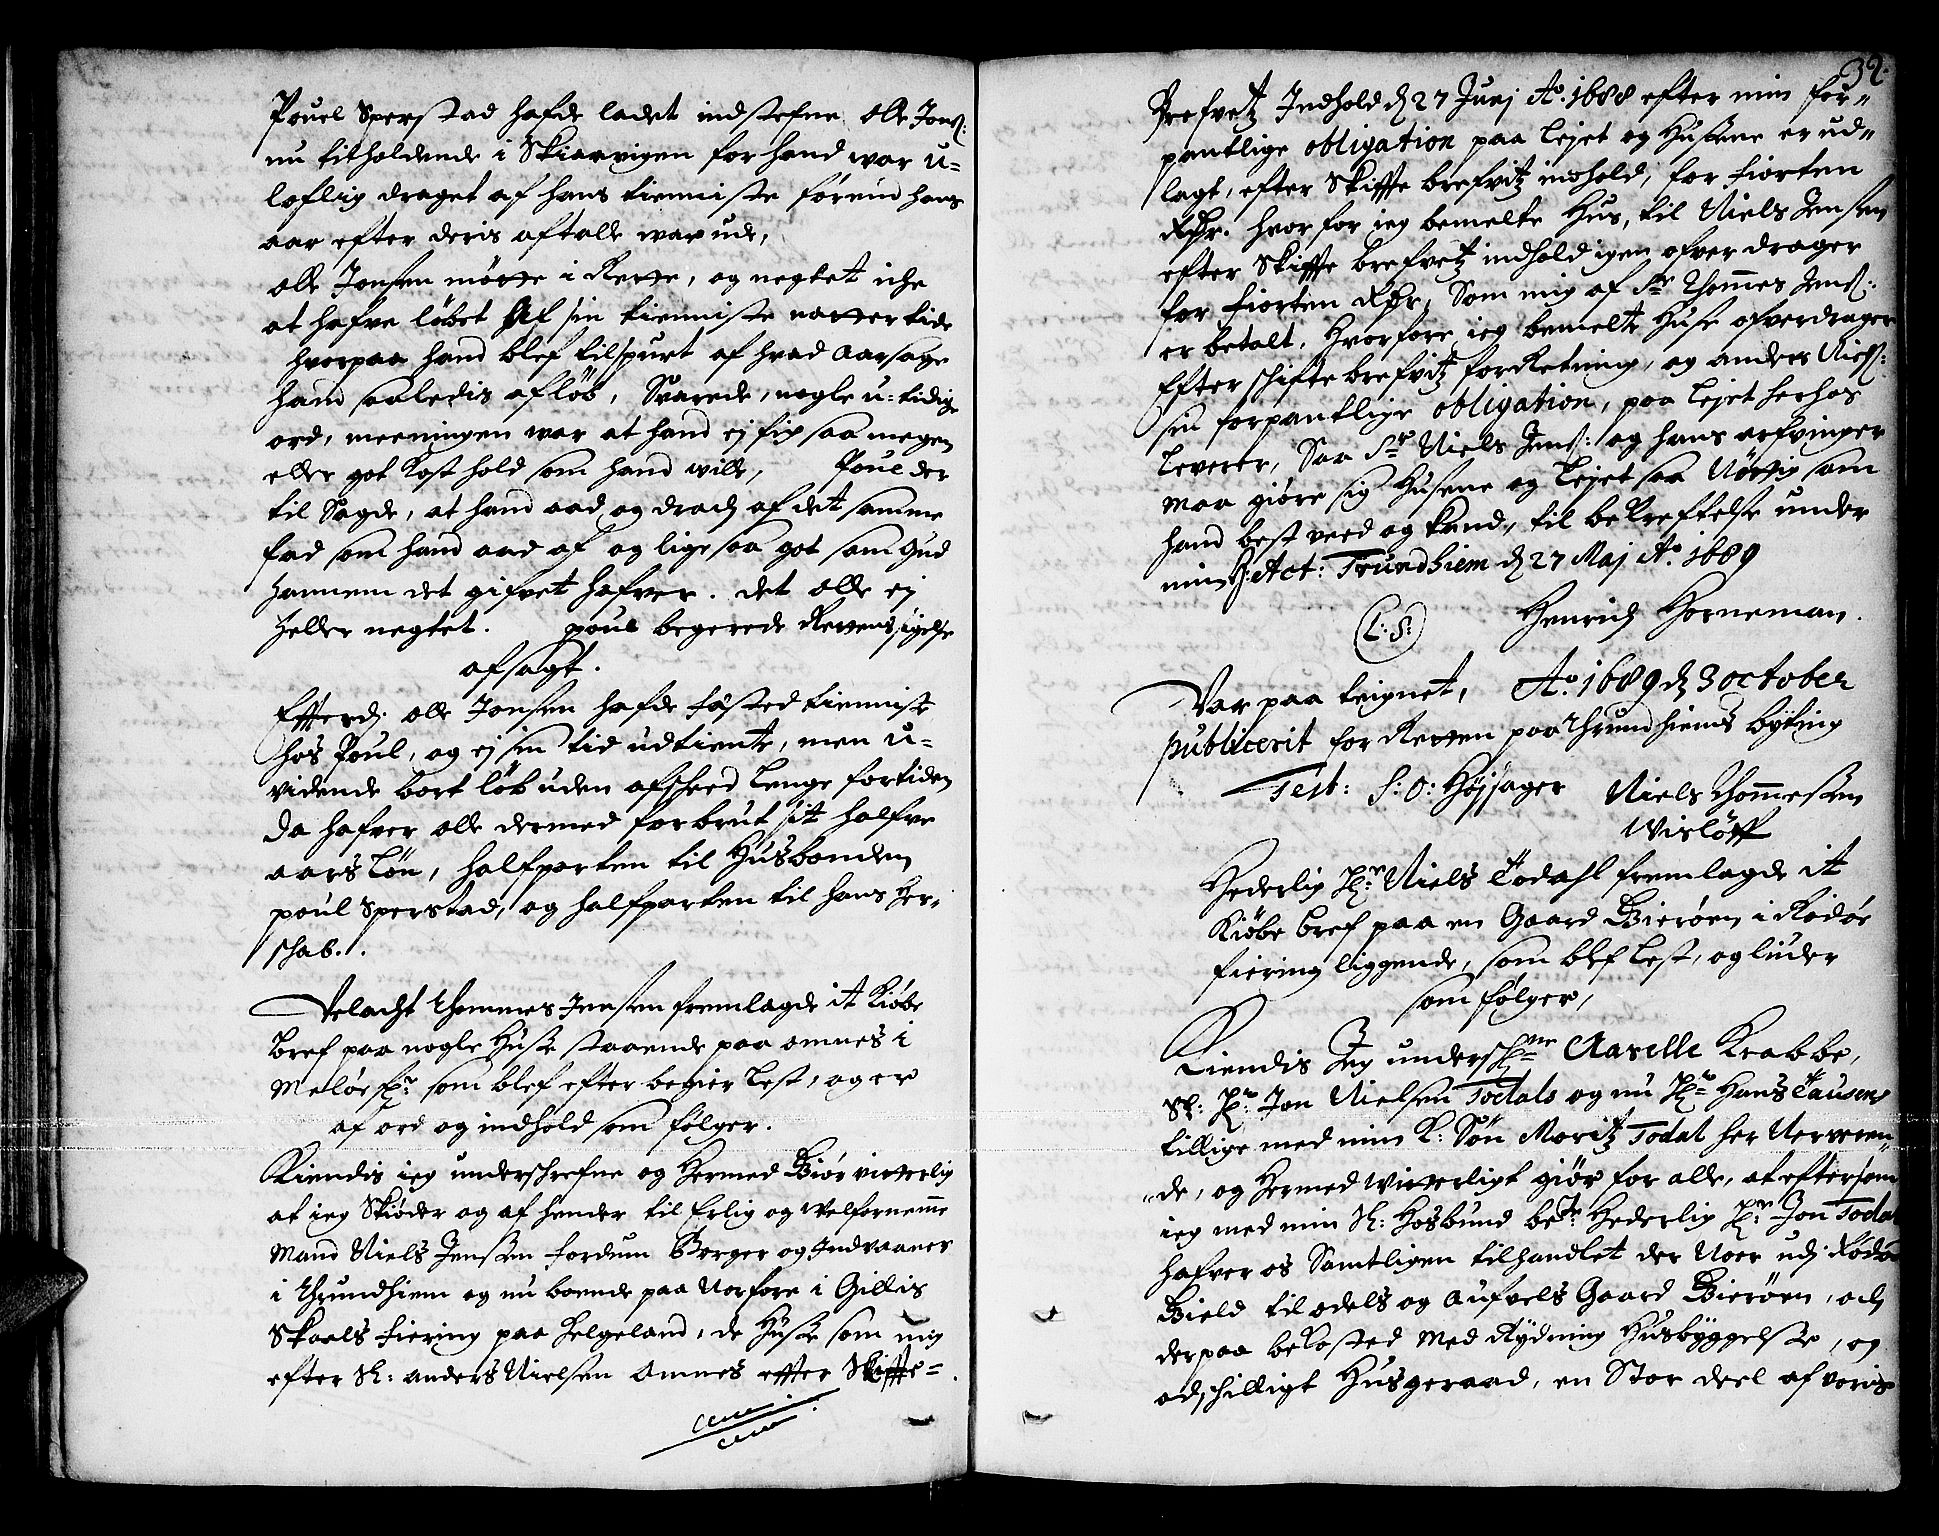 Pouel Sperstad hafde ladet indstefne Olle Jonß:
nu tilholdende i Skiarvigen for hand war u-
loflig draget af hans tienniste førend hans
aar efter deris aftalle war ude,
Olle Jonsen møtte i Rette, og negtet iche
at hafve løbet af sin tienniste natter tide
hvorpaa hand blef tilspurt af hvad Aarsage
hand saaledis afløb, Svarede, nogle u-tidige
ord, meeningen war at hand ej fik saa megen
eller got Kost hold som hand wille, Poul der
til Sagde, at hand aad og drack af det samme
fad som hand aad af og lige saa got som Gud
hannem det gifvet hafver. det Olle ej
heller negtet. poul begerede Rettens sigelse
afsagt.
Efterdj Olle Jonsen hafde fæsted tienniste
hos Poul, og ej sin tid udtiente, men u-
vidende bort løb uden afskeed lenge for tiden
da hafver Olle dermed forbrut sit halfve
aars Løn, halfparten til Husbonden
poul Sperstad, og halfparten til hans Her-
schab.
Velacht Thommes Jensen fremlagde it Kiøbe
bref paa nogle Huse staaende paa Omnes i
Meløe som blef efter begier Lest, og er
af ord og indhold som følger.
Kiendis ieg underschrefne og Hermed Giør vitterlig
at ieg Skiøder og af hender til Erlig og Welfornemme
Mand Niels Jensen fordum Borger og Indvaaner
i Thrundhiem og nu boende paa Norfore i Gillis
Skaals fiering paa Helgeland, de Huse som mig
efter Sl: anders Nielsen Omnes effter Skiffte-
32.
Brefvetz Indhold d 27 Junj Ao. 1688 efter min for-
pantlige obligation paa Lejet og Husene er ud-
lagt, efter Skiffte brefvitz inhold, for fiorten
Rdr. hvor for ieg bemelte Hus, til Niels Jensen
efter Skiffte brefvetz indhold igen ofver drager
for fiorten Rdr, Som mig af Sr Thommes Jenß:
er betalt. Hvorfore ieg bemelte Huse ofverdrager
Efter schifte brefvitz forRetning, og anders Nielß:
sin forpantlige obligation, paa Lejet herhos
Leverer, Saa Sr Niels Jenß: og hans arfvinger
maa giøre sig Husene og Lejet saa Nøttig som
hand best veed og kand, til bekreftelse under
min H: Act: Trundhiem d 27 Maj Ao. 1689
(L: S:) Henrich Horneman.
Var paa teignet, Ao. 1689 d 3 october
publicerit for Retten paa Thrundhiems byting
Test: S: O: Højsager Niels Thommesen
Wisløff
Hederlig Hr Niels Todahl fremlagde it
Kiøbe bref paa en Gaard Bierøen i Rødøe
fiering liggende, som blef Lest, og liuder
som følger,
Kiendis Jeg undersch: Aarelle Krabbe,
Sl: Hr Jon Nielsen Todals og nu Hr Hans Tausens
tillige med min K: Søn Moritz Todal her Nerveren-
-de, og hermed vitterligt giør for alle, at eftersom
ieg med min Sl: Hosbund be:te Hederlig Hr Jon Todal
hafver os Samtligen tilhandlet der Noer udj Rødøe
Gield til odels og aufvels Gaard Bierøen, och
derpaa bekosted Med Rydning Husbyggelse, og
adschilligt Husgeraad, en Stor deel af voris